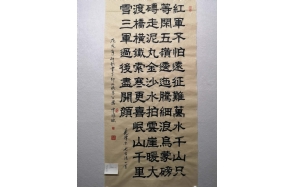 紅軍不怕遠征難萬水千山只
等閑五嶺逶迤騰細浪烏蒙磅
礴走泥丸金沙水拍雲崖暖大
渡橋橫鐵索寒更喜岷山千里
雪三軍過後盡開顏